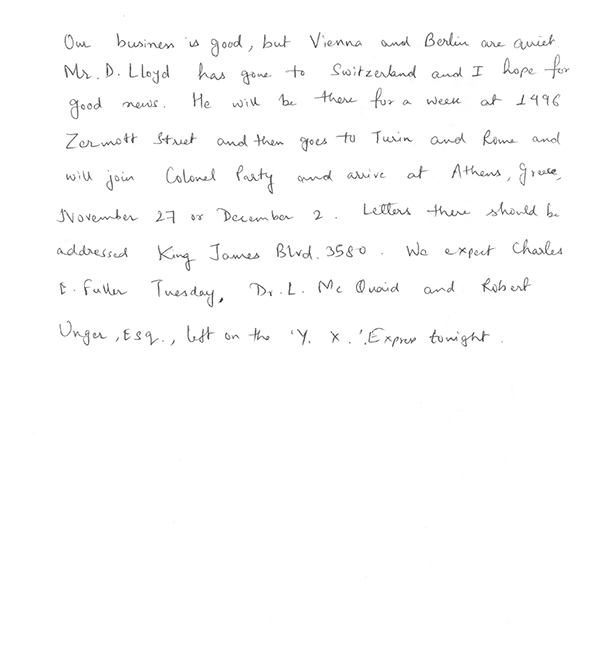 Our business is good, but Vienna and Berlin are quiet
Mr. D. Lloyd has gone to Switzerland and I hope for
good news. He will be there for a week at 1496
Zermott Street and then goes to Turin and Rome and
will join Colonel Party and arrive at Athens, Greece,
November 27 or December 2. Letters there should be
addressed King James Blvd. 3580. We expect Charles
E. Fuller Tuesday, Dr. L. Mc Quaid and Robert
Unger, Esq., left on the 'Y. X.' Express tonight.